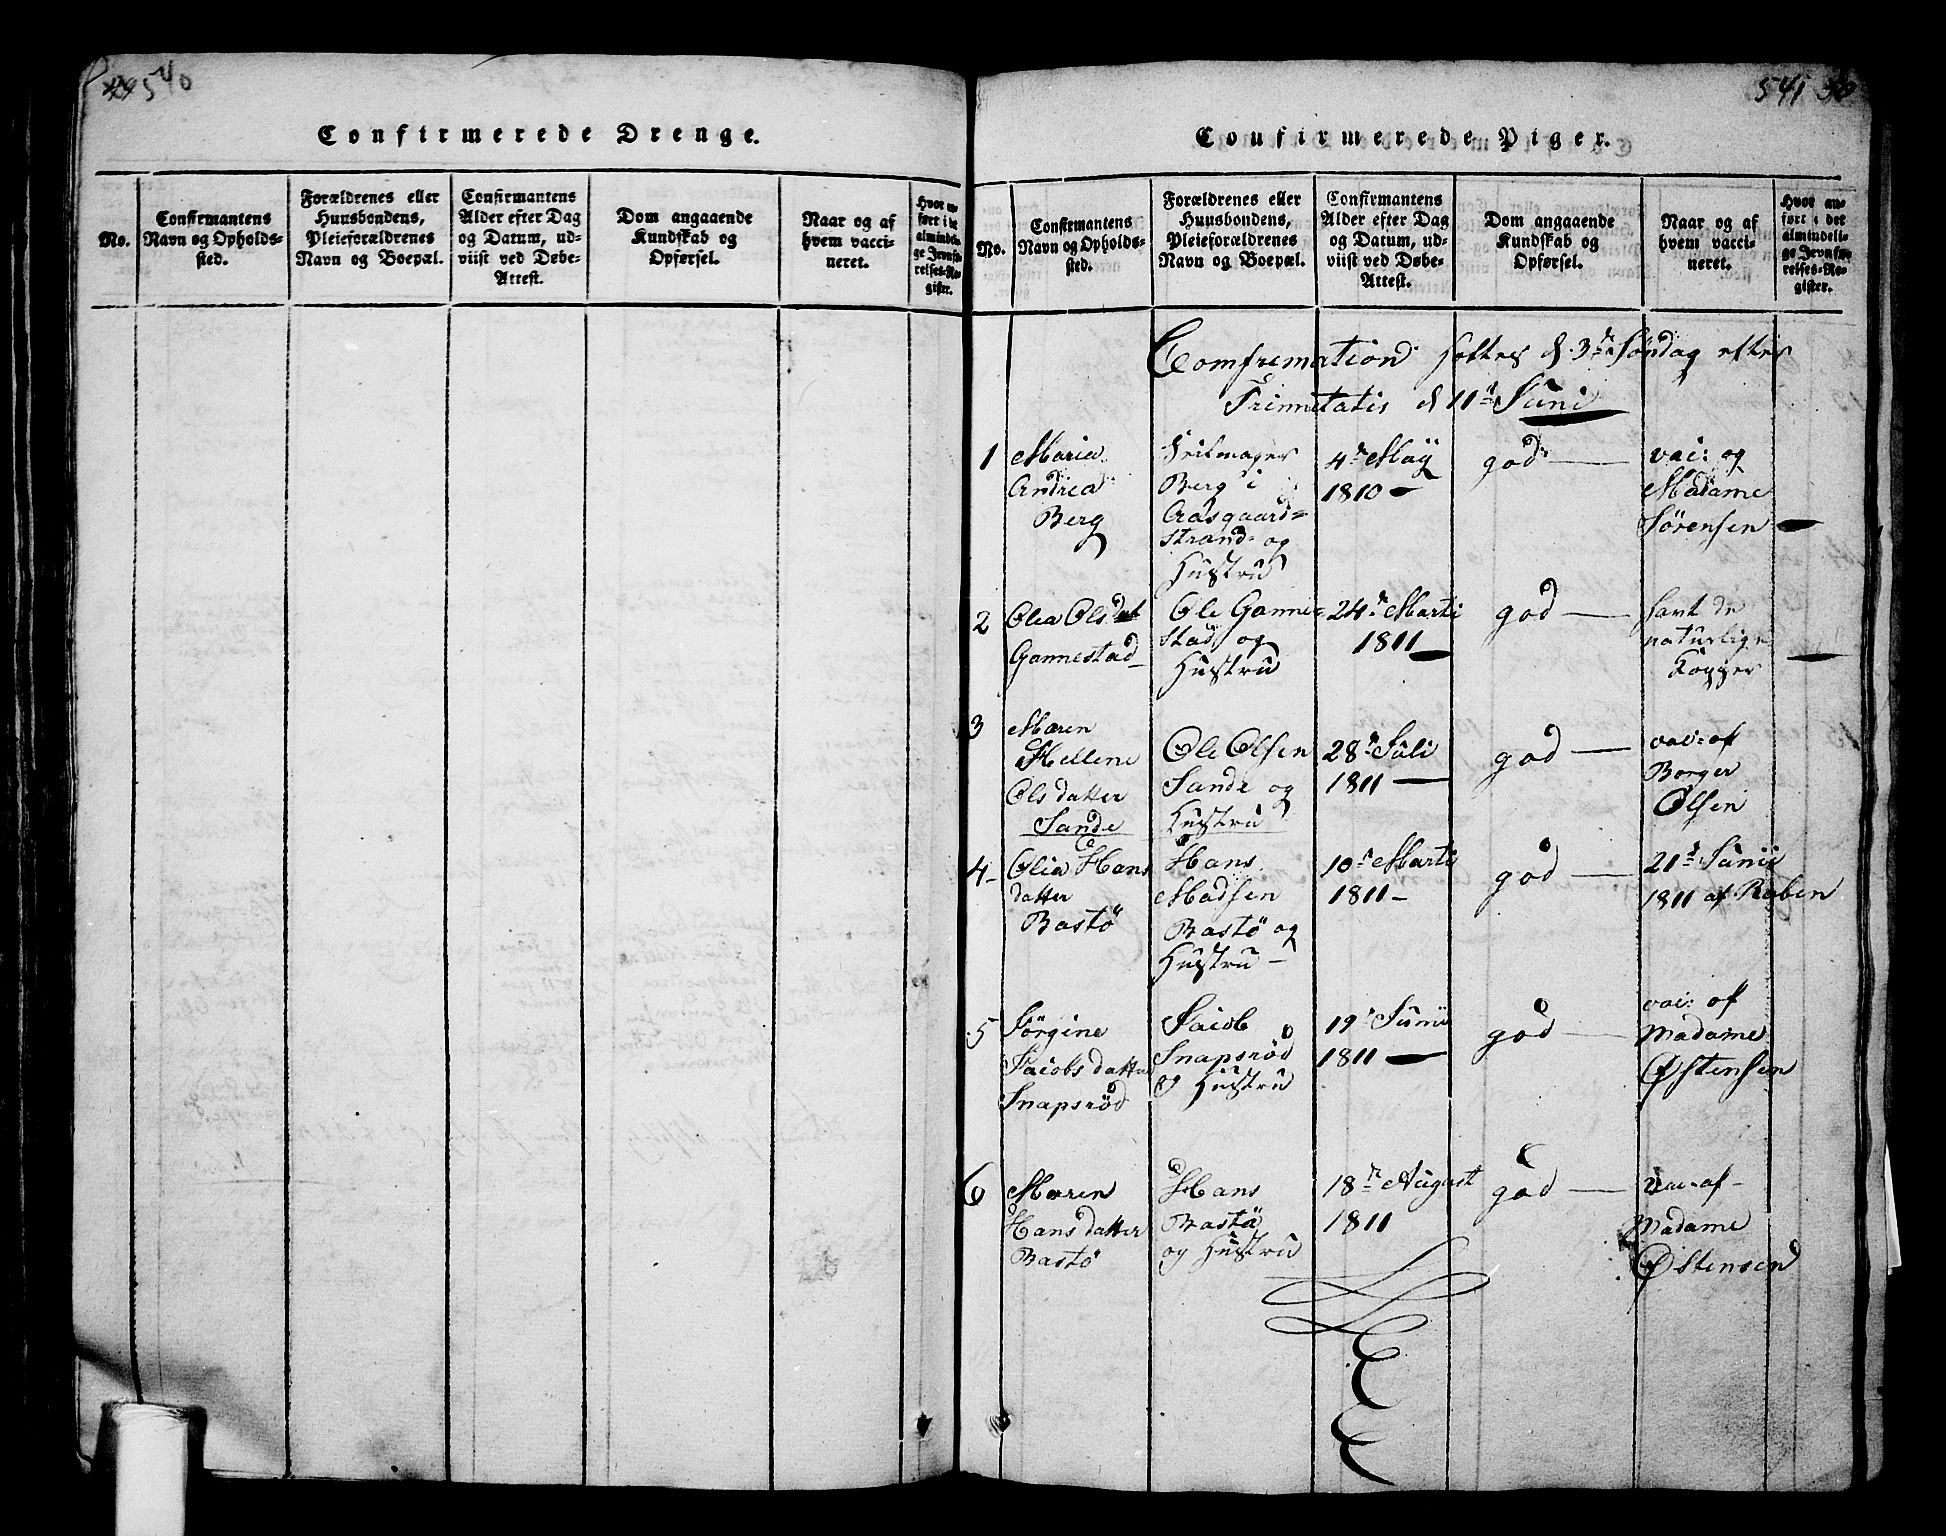 540
Confirmerede Drenge.
No.
Confirmantens
Navn og Opholds-
sted.
Forældrenes eller
Huusbondens,
Pleieforældrenes
Navn og Boepæl.
Confirmantens
Alder efter Dag
og Datum, ud-
viist ved Døbe-
Attest.
Dom angaaende
Kundskab og
Opførsel.
Naar og af
hvem vacci-
neret.
Hvor an-
ført i det
almindeli-
ge Jevnfø-
relses-Re-
gister.
541 50
Confirmerede Piger.
No.
Confirmantens
Navn og Opholds-
sted.
Forældrenes eller
Huusbondens,
Pleieforældrenes
Navn og Boepæl.
Confirmantens
Alder efter Dag
og Datum, ud-
viist ved Døbe-
Attest.
Dom angaaende
Kundskab og
Opførsel.
Naar og af
hvem vacci-
neret.
Hvor an-
ført i det
almindeli-
ge Jevnfø-
relses-Re-
gister.
Comfremation holtes d. 3de Søndag efter
Trinnitatis d 11te Juni
1
Maria
Andrea
Berg
Berg i
Aasgaard=
strand= og
Hustru
4de Maÿ
1810 —
god —
vai: og
Madame
Sørensen —
2
Olea Olsdat
Gannestad
Ole Ganne=
stad og
Hustru
24de Marti
1811 —
god —
havt de
naturlige
Kopper —
3
Maren
Hellene
Olsdatter
Sande
Ole Olsen
Sande og
Hustru
28de Juli
1811 —
god —
vai: af
Borger
Olsen
4
Olia Hans
datter
Bastö
Hans
Madsen
Bastö og
Hustru —
10de Marti
1811 —
god —
21de Junii
1811 af Raben
5
Jörgine
Jacobsdatter
Snapsröd
Jacob
Snapsröd
og Hustru
19de Junii
1811 —
god —
vai: af
Madame
Østensen
6
Maren
Hansdatter
Bastö
Hans
Bastö
og Hustru
18de August
1811
god —
vai: af
Madame
Østensen